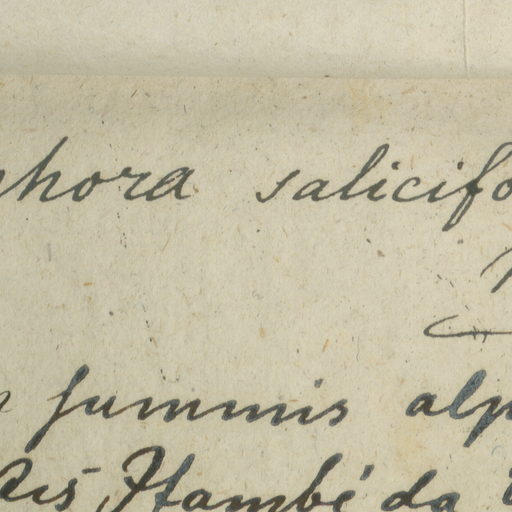 phora salicifo
summis alp
Itambé da